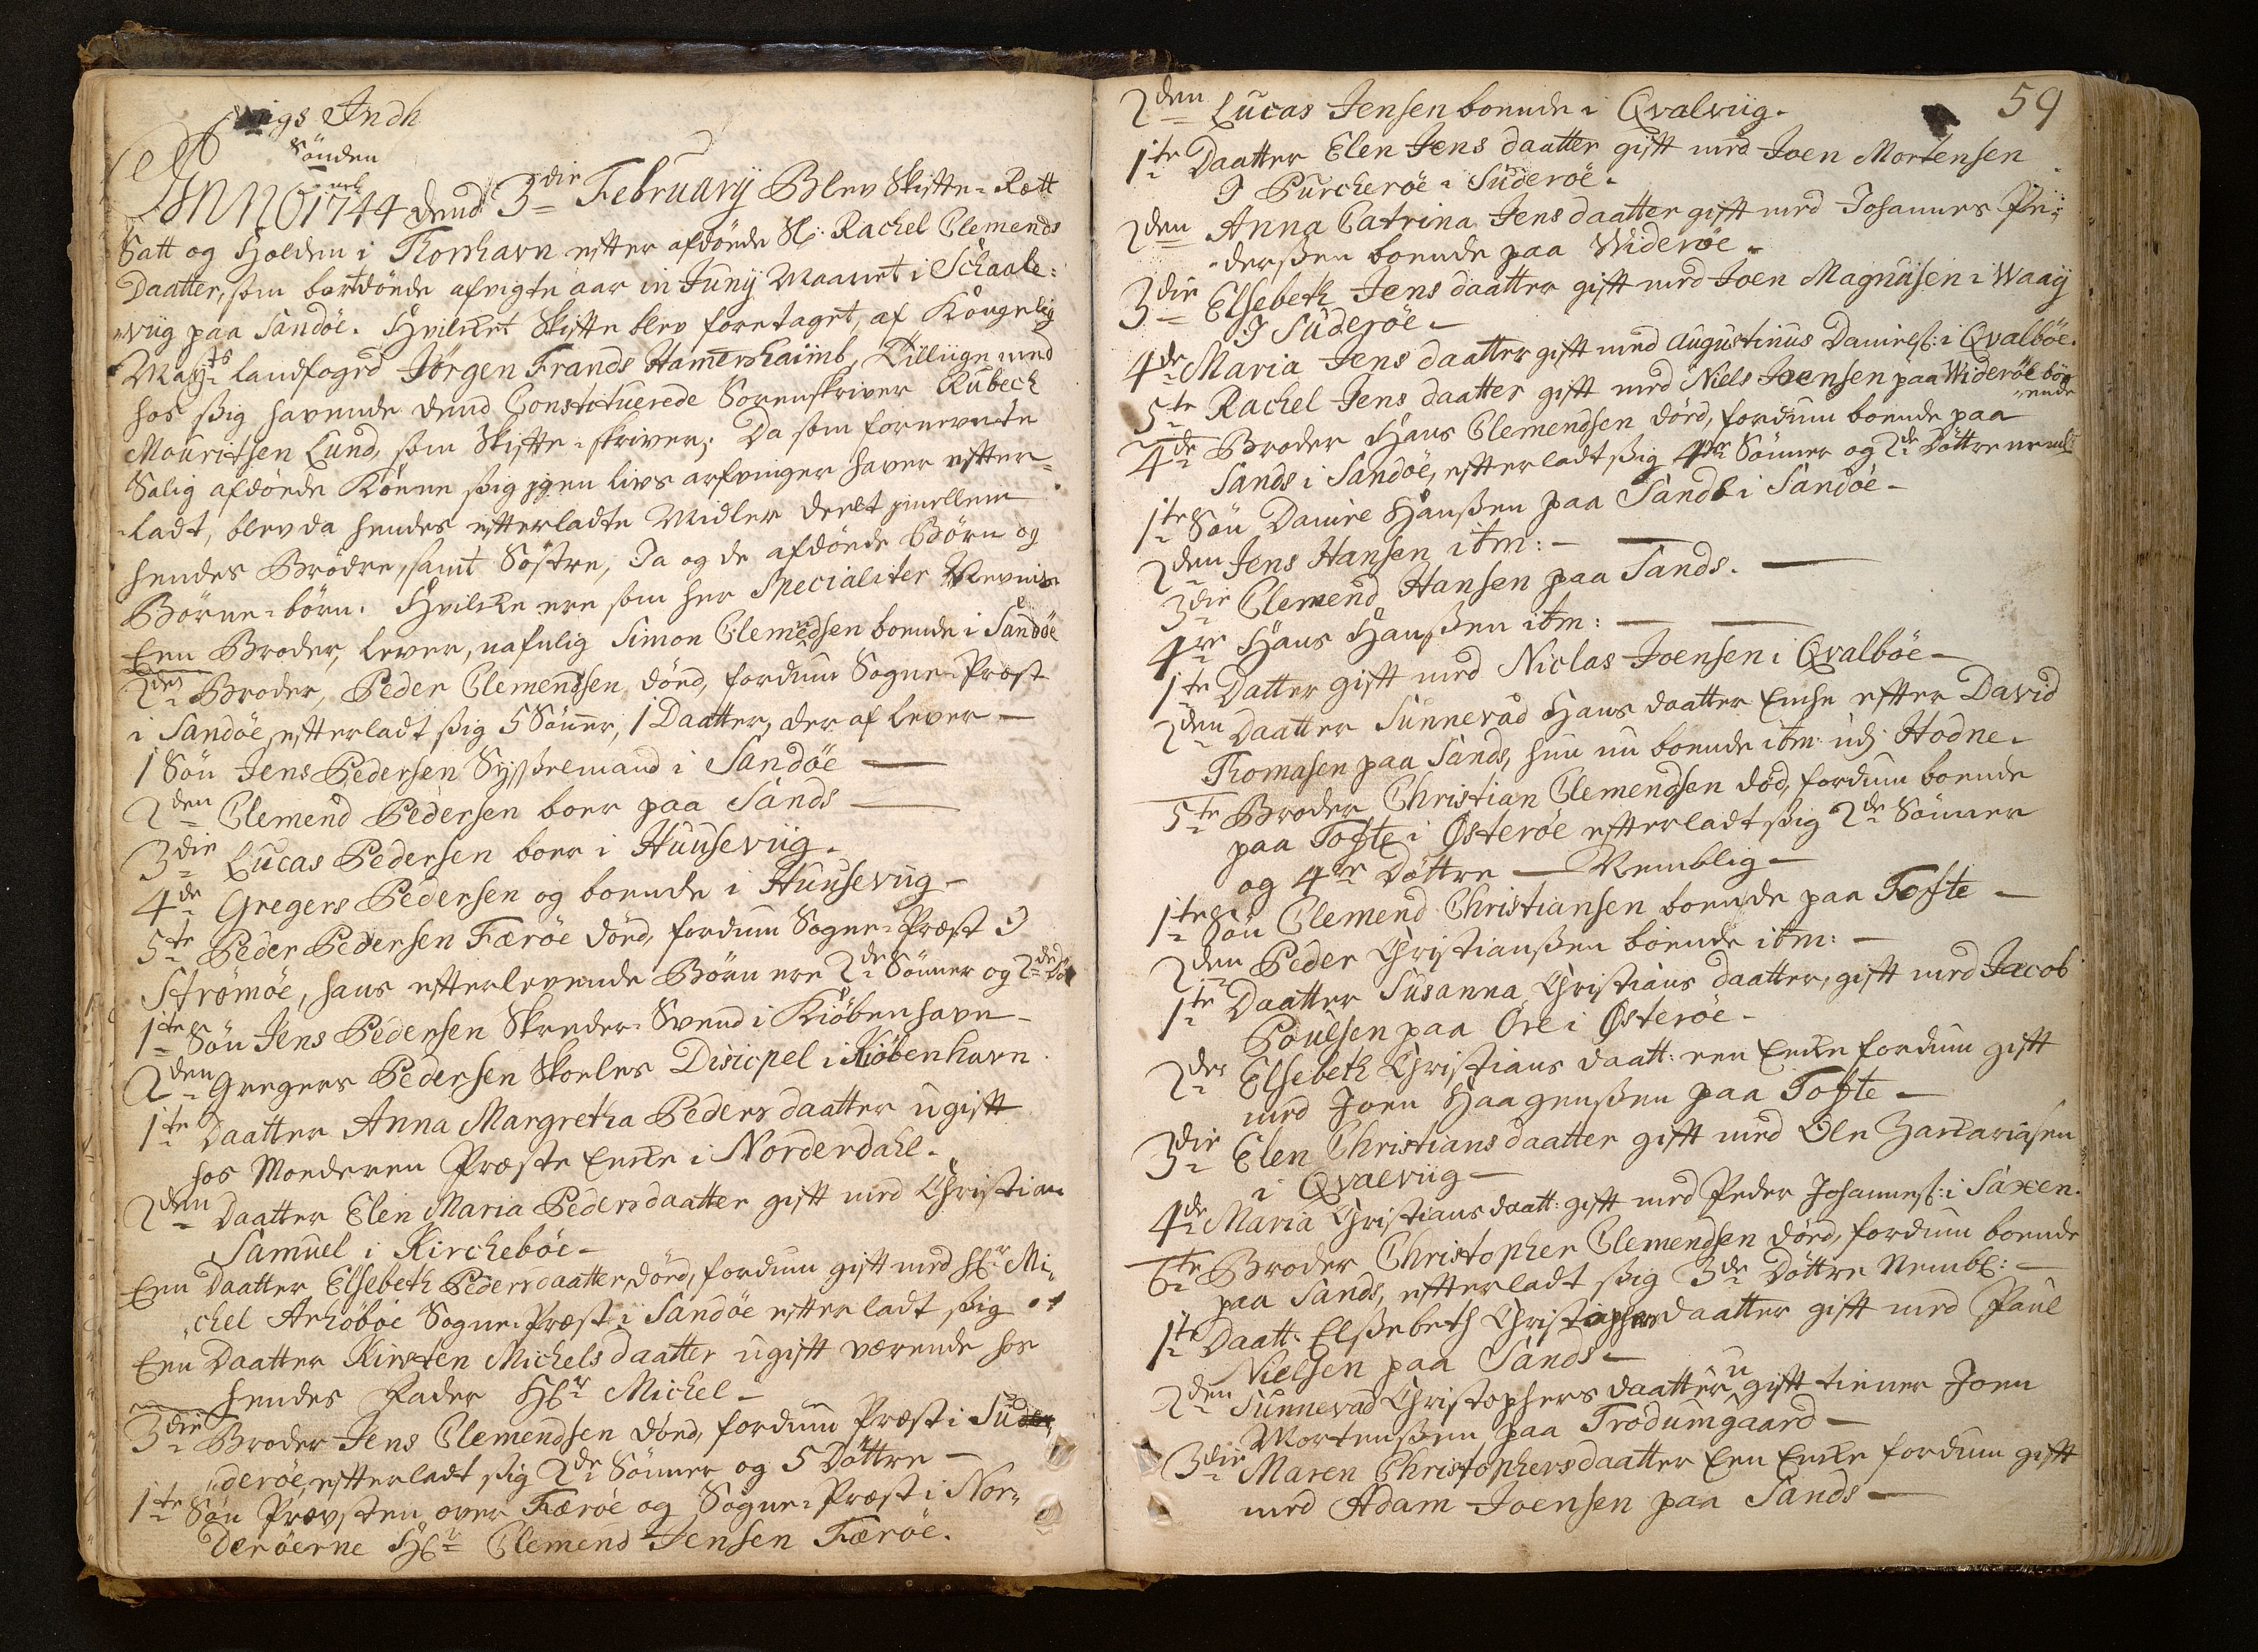 Sönden
ANNO 1744 dend 3die February Blev Skiftte-Rett
Satt og Holden i Thorshavn efter afdöede Sl: Rachel Clemends
Daatter, som bortdöede afvigte aar in Juny Maanet i Schaale-
wiig paa Sandöe. Hvilcket Skifte blev foretaget, af Kongelig
Mayts Landfoged Jörgen Frands Hamershaimb, Tilliige med
hos ßig havende dend Constituerede Sorenskriver Rubech
Mouritsen Lund, som Skifte-skriver; Da som fornevnte
Salig afdöede Könne ßig jgen livs arfvinger haver efter-
ladt, blev da hendes efterladte Midler deelt jmellem
hendes Brödre, samt Söstre, Ja og de afdöede Börn og
Börne-börn. Hvilcke ere som her Specialiter Nevnis
Een Broder, lever, nafnlig Simon Clemendsen boende i Sandöe
2den Broder, Peder Clemendsen död, fordum Sogne-Præst
i Sandöe, efterladt ßig 5 Sönner, 1 Daatter, der af lever —
1 Sön Jens Pedersen Sysßelmand i Sandöe —
2den Clemend Pedersen boer paa Sands —
3die Lucas Pedersen boer i Huuseviig.
4de Gregers Pedersen og boende i Huuseviig —
5te Peder Pedersen Færöe död, fordum Sogne-Præst J
Strömöe, hans efterlevende Börn ere 2de Sönner og 2de Döt
1te Sön Jens Pedersen Skreder-Svend i Kiöbenhavn —
2den Gregers Pedersen Skoeles Disicpel i Kiöbenhavn.
1te Daatter Anna Margretha Peders daatter ugift
hos Moderen Præste Encke i Norderdahl.
2den Daatter Elen Maria Pedersdaatter gift med Christian
Samuel i Kirckeböe —
Een Daatter Elsebeth Pedersdaatter död, fordum gift med Hr Mi-
chel Arhöböe Sogne-Præst i Sandöe efterladt ßig
Een Daatter Kirsten Michels daatter ugift værende hos
hendes Fader Hr Michel —
3die Broder Jens Clemendsen död, fordum Præst i Su
deröe, efterladt ßig 2de Sönner og 5 Döttre —
1te Sön Provsten over Færöe og Sogne-Præst i Nor-
deröerne Hr Clemend Jensen Færöe.
59
2den Lucas Jensen boende i Qvalviig.
1te Daatter Elen Jens daatter gift med Joen Mortensen
J Purckeröe i Suderöe.
2den Anna Catrina Jens daatter gift med Johannes Pe-
dersßen boende paa Wideröe.
3die Elsebeth Jens daatter gift med Joen Magnusen i Waay
J Suderöe —
4de Maria Jens daatter gift med Augustinus Daniels: i Qvalböe.
5te Rachel Jens daatter gift med Niels Joensen paa Wideröe bo-
ende
4de Broder Hans Clemendsen död, fordum boende paa
Sands i Sandöe, efterladt ßig 4re Sönner og 2de Döttre neml
1te Sön Daniel Hanßen paa Sands i Sandöe —
2den Jens Hansen itm: —
3die Clemend Hansen paa Sands. —
4re Hans Hanßen itm: —
1te Datter gift med Niclas Joensen i Qvalböe —
2den Daatter Sunnevad Hans daatter Encke efter David
Thomasen paa Sands, hun nu boende itm: udj Hodne.
5te Broder Christian Clemendsen död, fordum boende
paa Tofte i Österöe efterladt ßig 2de Sönner
og 4re Döttre — Nemblig —
1te Sön Clemend Christiansen boende paa Tofte —
2den Peder Christianßen boende itm: —
1te Daatter Susanna Christians daatter, gift med Jacob
Poulsen paa Öre i Österöe —
2den Elsebeth Christians daatt: een Encke fordum gift
med Joen Haagenßen paa Tofte —
3die Elen Christians daatter gift med Ole Zackariasen
i Qvalviig —
4de Maria Christians daatt: gift med Peder Johannes: i Saxen.
6te Broder Christopher Clemendsen död, fordum boende
paa Sands, efterladt ßig 3de Döttre Nembl: —
1te Daatt: Elßebeth Christophersdaatter gift med Paul
Nielsen paa Sands —
2den Sunnevad Christophers daatter ugift tiener Joen
Mortenßen paa Trödumgaard —
3die Maren Christophersdaatter Een Encke fordum gift
med Adam Joensen paa Sands —